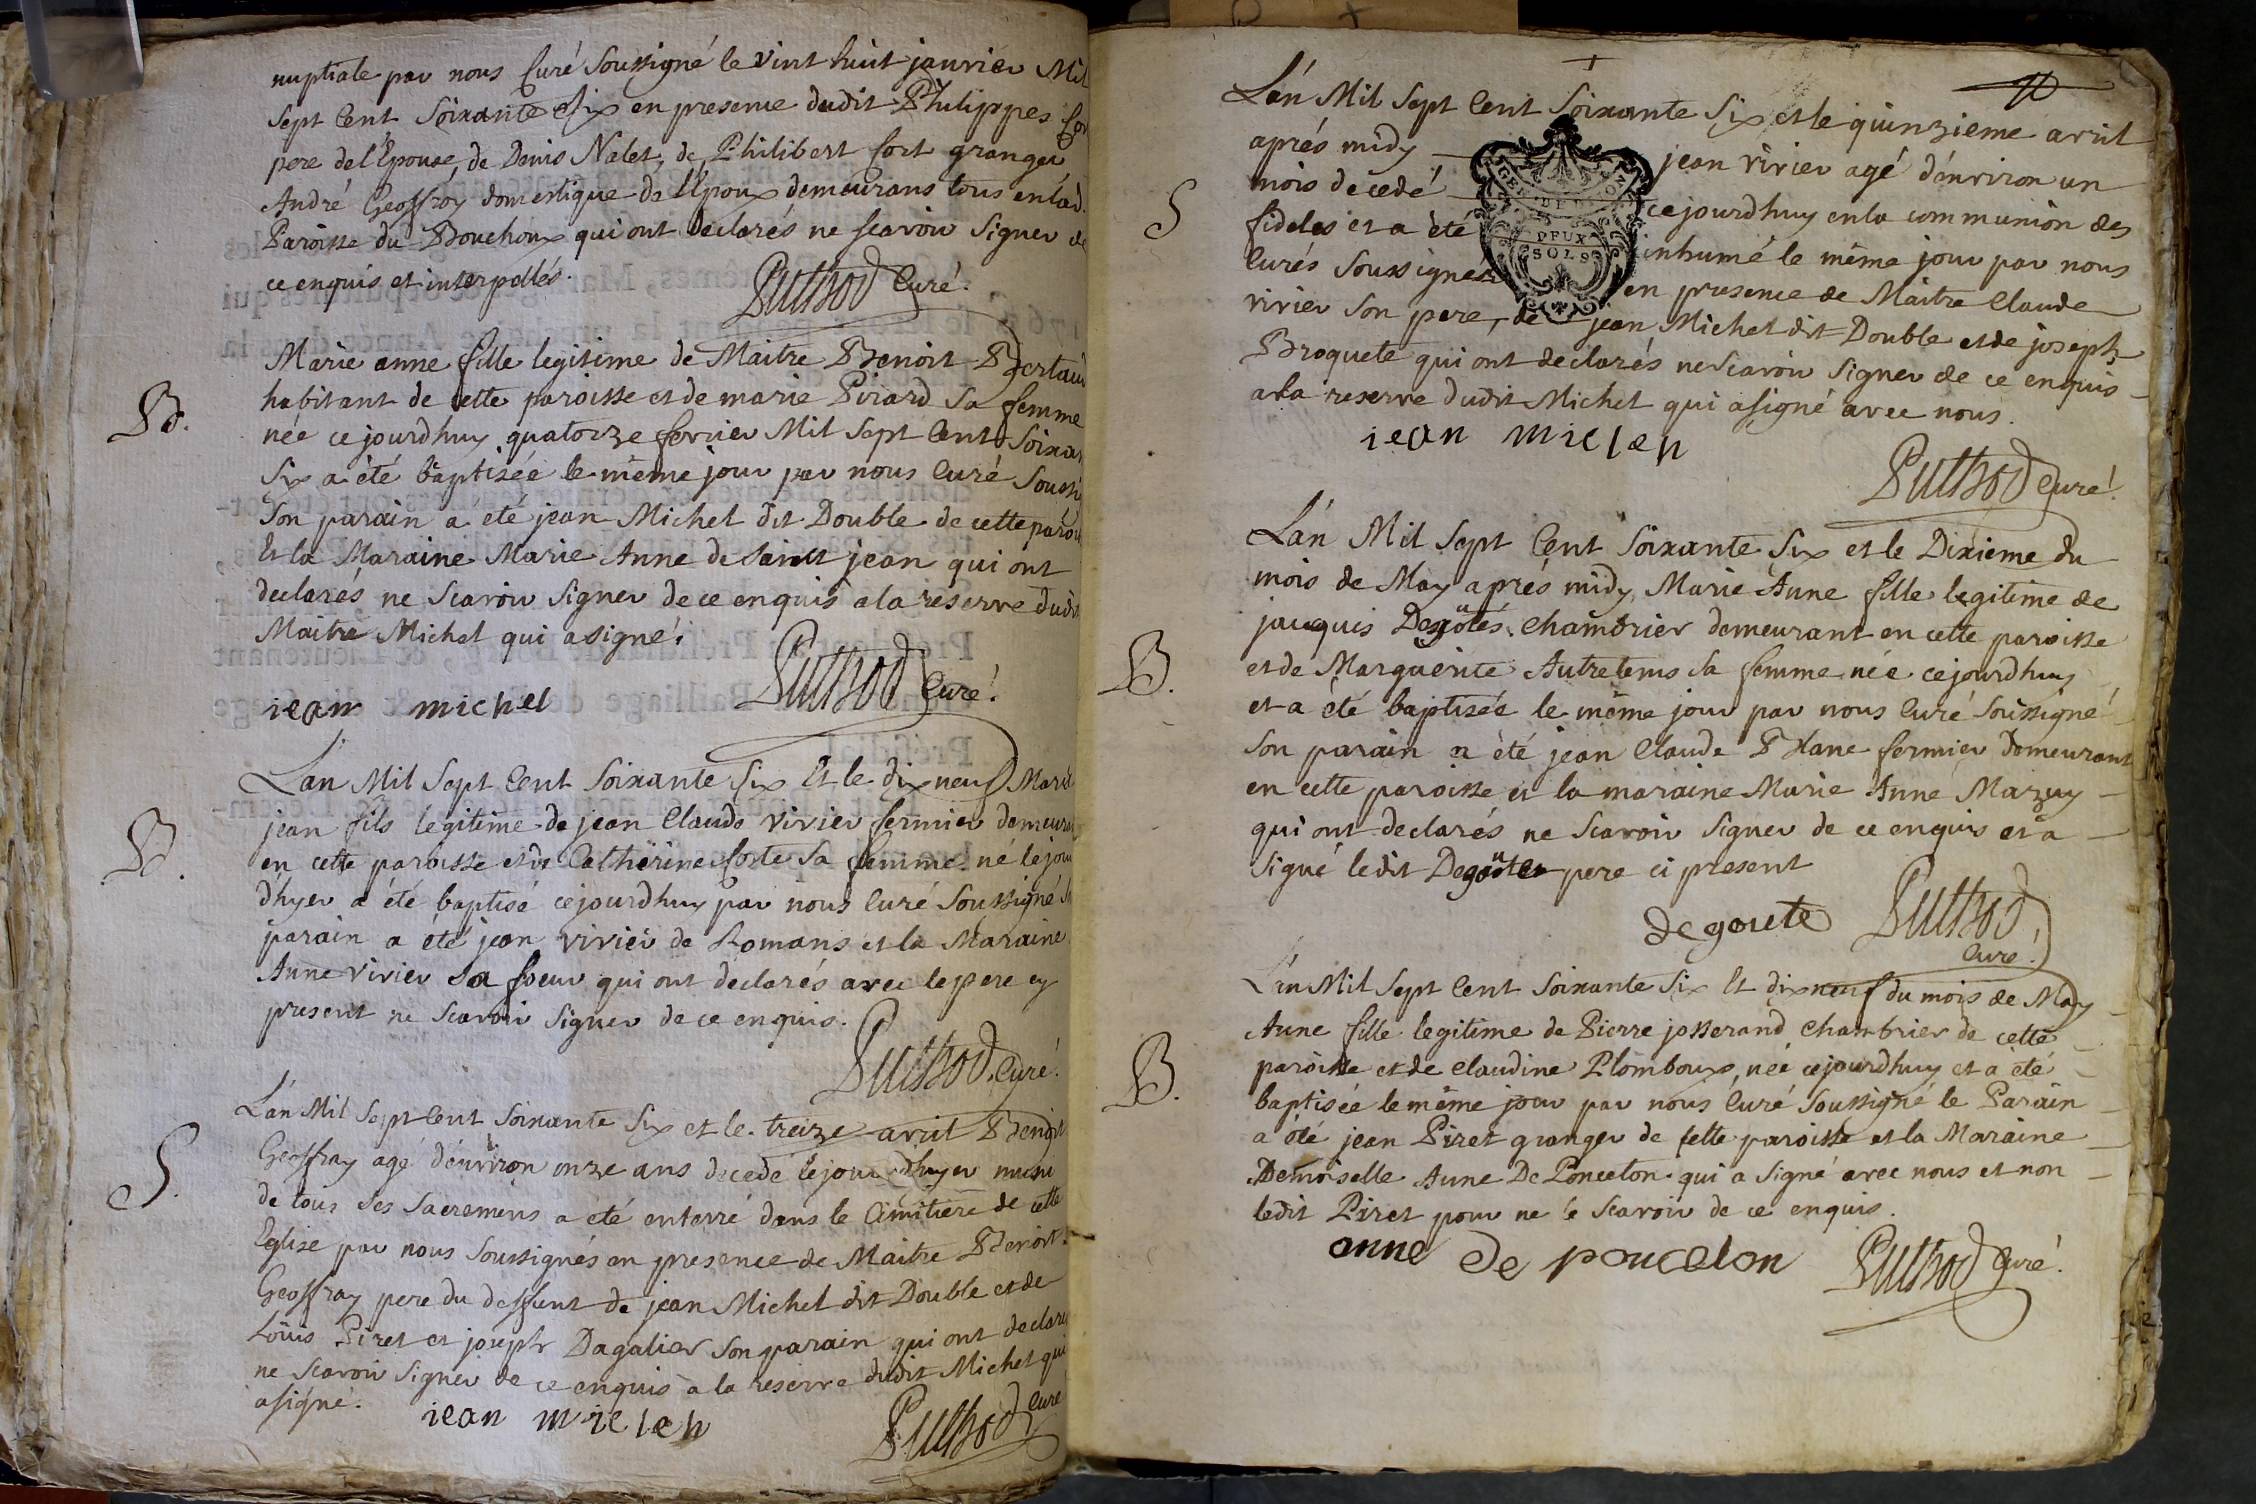 nuptiale par nous Curé Soussigné le vint huit janvier Mil
Sept Cent Soixante Six en presence dudit Philippes
pere de l'Epouse, de Denis Nalet, de Philibert fort granger
André Geoffroy domestique de l'Epoux demeurans tous en lad.
Paroisse du Bouchoux qui ont declarés ne scavoir Signer de
ce enquis et interpellés.
Puthod Curé.
B.
Marie anne fille legitime de Maitre Benoit Bertaud
habitant de cette paroisse et de marie Pirard Sa femme
née ce jourdhuy quatorze fevrier Mil Sept Cent Soixan
Six a été baptisée le même jour par nous Curé Soussi
Son parain a été jean Michel dit Double de cette paroi
Et la Maraine Marie Anne de Saint jean qui ont
declarés ne Scavoir Signer de ce enquis a la réserve dudit
Maitre Michel qui a signé.
iean michel
Puthod Curé.
B.
L'an Mil Sept Cent Soixante Six Et le dix neuf Mars
jean fils legitime de jean Claude Vivier fermier demeura
en cette paroisse et de Catherine forte Sa femme né le jour
d'hyer a été baptisé cejourdhuy par nous Curé Soussigné
parain a été jean vivier de Romans et la Maraine
Anne Vivier Sa soeur qui ont declarés avec le pere cy
present ne Scavoir Signer de ce enquis.
Puthod Curé.
S.
L'an Mil Sept Cent Soixante Six et le treize avril Benoit
Geoffray agé d'environ onze ans decedé le jour d'hyer muni
de tous Ses Sacremens a été enterré dans le Cimitiere de cette
Eglise par nous Soussignés en presence de Maitre Benoit
Geoffray pere du deffunt de jean Michel dit Double et de
Loüis Piret et joseph Dagalier Son parain qui ont declaré
ne Scavoir Signer de ce enquis a la reserve dudit Michel qui
a signé.
iean michel
Puthod Curé
L'an Mil Sept Cent Soixante Six et le quinzieme avril
S
aprés midy jean vivier agé d'environ un
mois decedé ce jourdhuy en la communion des
fideles et a été inhumé le même jour par nous
Curés Soussignés en presence de Maitre Claude
vivier Son pere, de jean Michel dit Double et de joseph
Broquete qui ont declarés ne Scavoir Signer de ce enquis
a la reserve dudit Michel qui a signé avec nous.
DEUX
SOLS
iean michel
Puthod Curé.
L'an Mil Sept Cent Soixante Six et le Dixieme du
mois de May aprés midy, Marie Anne fille legitime de
jacques Degoutés Chambrier demeurant en cette paroisse
B.
et de Marguerite Autretems Sa femme née cejourdhuy
et a été baptisée le même jour par nous Curé Soussigné
Son parain a été jean Claude Blanc fermier demeurant
en cette paroisse et la maraine Marie Anne Mazuy
qui ont declarés ne Scavoir Signer de ce enquis et a
Signé ledit Degoutes pere ci present
degoute Puthod
Curé.
L'an Mil Sept Cent Soixante Six Et dix neuf du mois de May
Anne fille legitime de Pierre josserand Chambrier de cette
paroisse et de Claudine Plomboux, née cejourdhuy et a été
B.
baptisée le même jour par nous Curé Soussigné le Parain
a été jean Piret granger de cette paroisse et la Maraine
Demoiselle Anne De Poncelon qui a Signé avec nous et non
ledit Piret pour ne le Scavoir de ce enquis.
anne de poncelon
Puthod Curé.